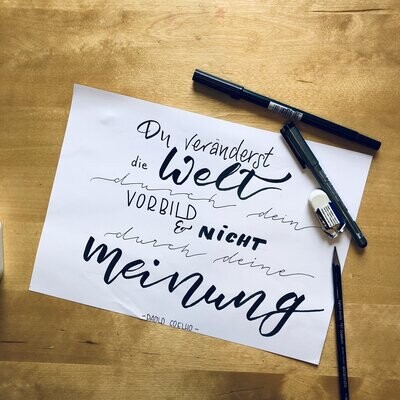 Du veränderst
die Welt
durch dein
VORBILD
& NICHT
durch deine
Meinung
- PAOLO COELHO -